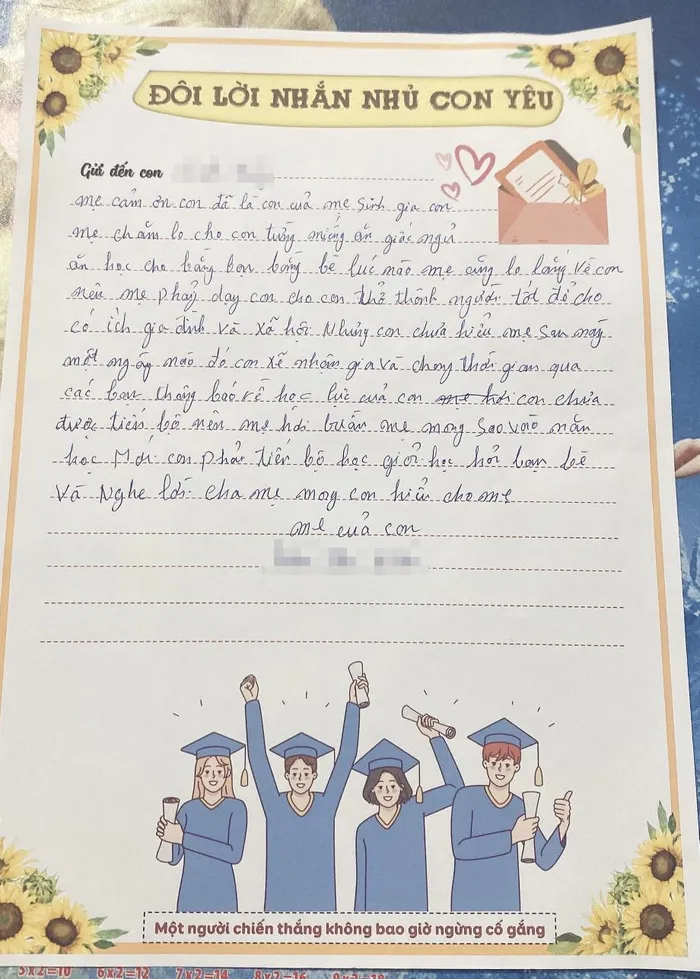 ĐÔI LỜI NHẮN NHỦ CON YÊU
Gửi đến con
mẹ cảm ơn con đã là con của mẹ Sinh gia con
mẹ chăm lo cho con từng miếng ăn giấc ngủ
ăn học cho bằng bạn bằng bè lúc nào mẹ cũng lo lắng về con
nên mẹ phảy dạy con cho con thở thành người tốt để cho
có ích gia đình và xã hội Nhưng con chưa hiểu mẹ Sau này
một ngày nào đó con xẽ nhận gia và chong thời gian qua
các bạn thông báo về học lực của con con chưa
được tiến bộ nên mẹ hơi buần mẹ mong Sao vào năn
học Mới con phải tiến bộ học giỏi học hỏi bạn bè
và Nghe lời cha mẹ mong con hiểu cho mẹ
mẹ của con
Một người chiến thắng không bao giờ ngừng cố gắng
5x2=10 6x2=12 7x2=14 8x2=16 9x2=18